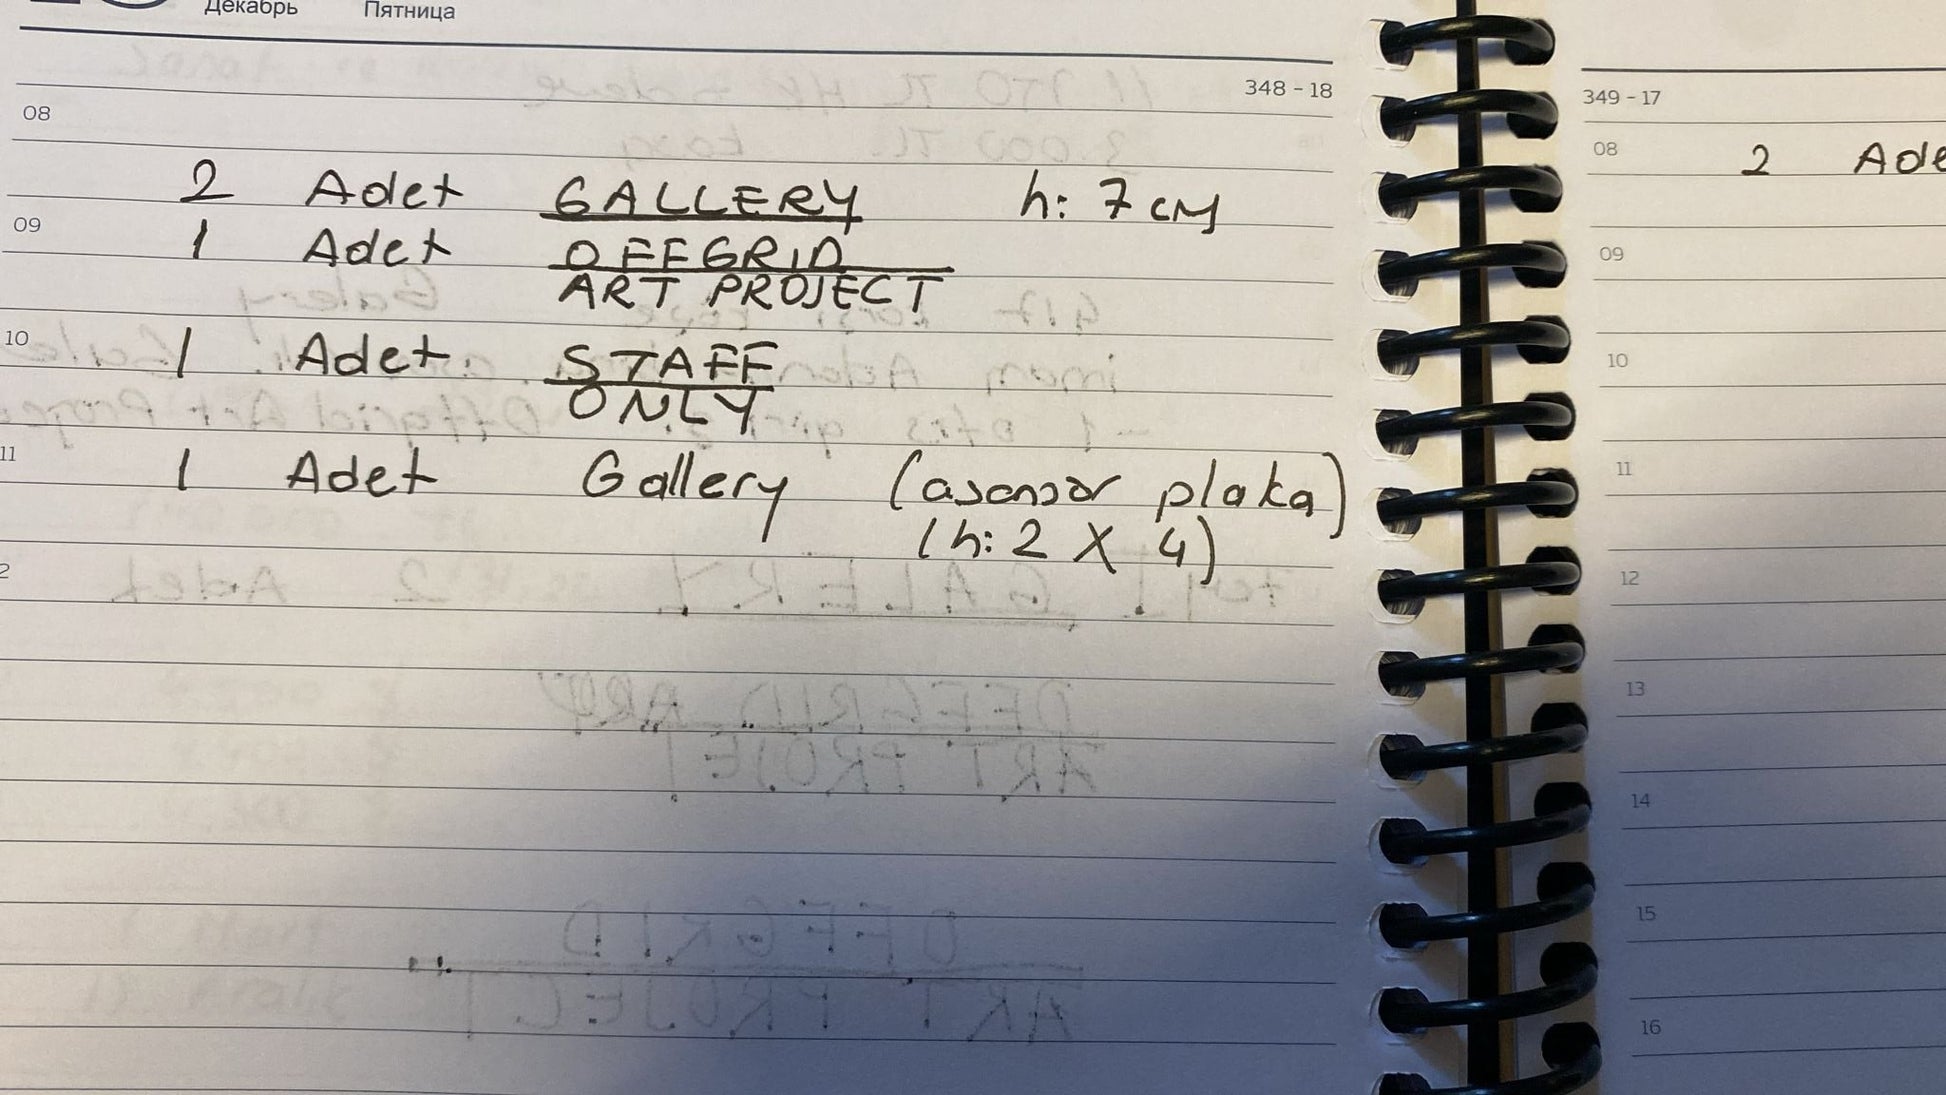 Декабрь Пятница
348 - 18
08
2 Adet GALLERY h: 7 cm
09
1 Adet OFFGRID
ART PROJECT
10
1 Adet STAFF
ONLY
11
1 Adet Gallery (asansör plaka)
(h: 2 X 4)
2
349 - 17
08
2 Ade
09
10
11
12
13
14
15
16